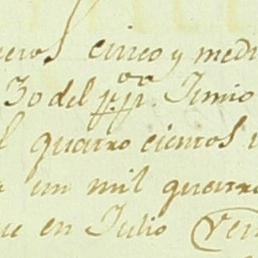 cinco y med
30 del ppp.or Junio
quatro cientos
un mil quatro
en Julio Ven